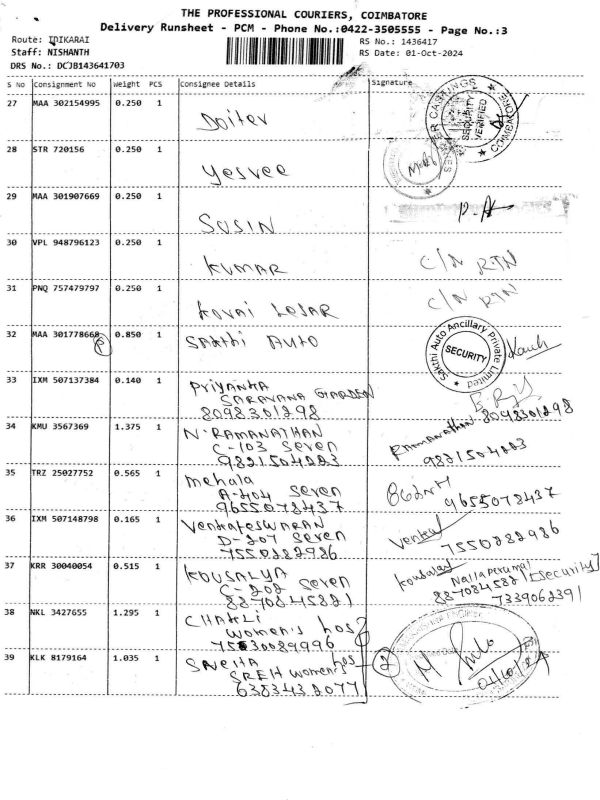 THE PROFESSIONAL COURIERS, COIMBATORE
Delivery Runsheet - PCM - Phone No.:0422-3505555 - Page No.:3
Route: IDIKARAI
RS No.: 1436417
Staff: NISHANTH
RS Date: 01-Oct-2024
DRS No.: DCJB143641703
S No Consignment No Weight PCS Consignee Details Signature
27 MAA 302154995 0.250 1
Doitev
SECURITY VERIFIED
COIMBATORE
28 STR 720156 0.250 1
Yesvee
29 MAA 301907669 0.250 1
SUSIN
30 VPL 948796123 0.250 1
KUMAR C/N RTN
31 PNQ 757479797 0.250 1
KOVAI LESAR C/N RTN
32 MAA 301778668 0.850 1 Sakthi Auto
Sakthi Auto Ancillary Private Limited
SECURITY
33 IXM 507137384 0.140 1 Priyanka
SARAVANA GARDEN
8098301298 8098301298
34 KMU 3567369 1.375 1 N. RAMANATHAN Ramanathan
C-103 Seven
9821504223 9821504223
35 TRZ 25027752 0.565 1 Mehala
A-404 Seven
9655078437 9655078437
36 IXM 507148798 0.165 1 VENKATESWARAN
D-207 Seven Venkat
7550282986 7550282986
37 KRR 30040054 0.515 1 KOUSALYA Nallaperumal [Security]
C-202 Seven
8870845221 7339062391
38 NKL 3427655 1.295 1 CHAKLI
Women's hos
7530089996
39 KLK 8179164 1.035 1 SNEHA
SREH Women's hos 2
6383432077